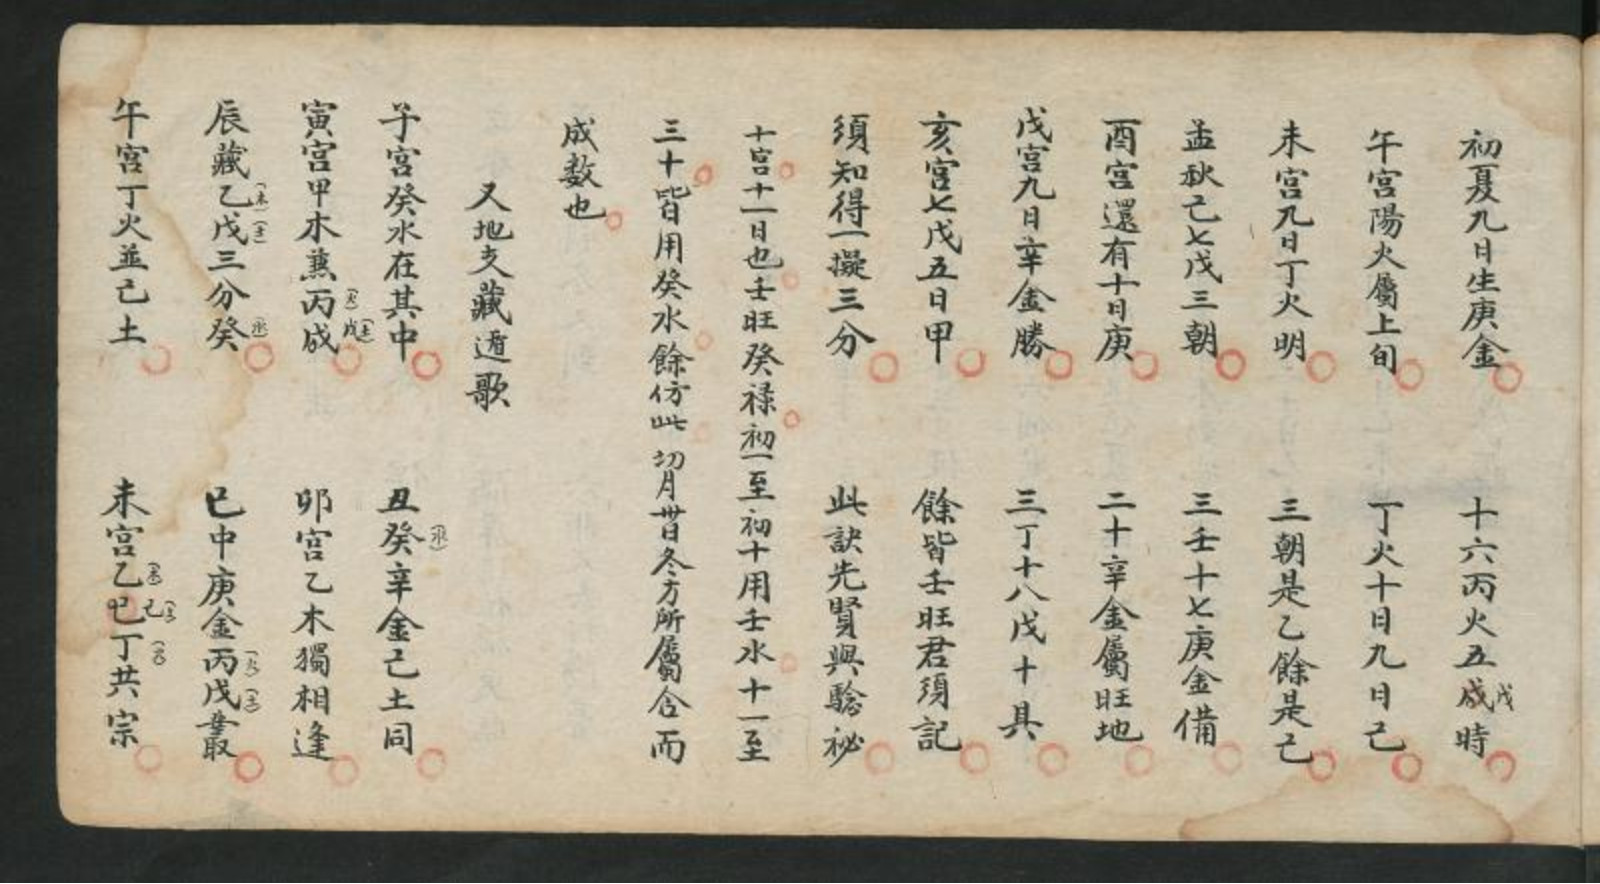 初夏九日生庚金　十六丙火五戊時
午宮陽火屬上旬　丁火十日九日己
未宮九日丁火明　三朝是乙餘是己
孟秋己七戊三朝　三壬十七庚金備
酉宮還有十日庚　二十辛金屬旺地
戌宮九日辛金勝　三丁十八戊十具
亥宮七戊五日甲　餘皆壬旺君須記
須知得一擬三分　此訣先賢與驗祕
十宮十一日也壬旺癸祿初一至初十用壬水十一至
三十皆用癸水餘仿此切月卅日冬方所屬合而
成数也
又地支藏遁歌
子宮癸水在其中　丑癸(水)辛金己土同
寅宮甲木蒹丙(火)戊(土)　卯宮乙木獨相逢
辰藏乙(木)戊(土)三分癸(水)　巳中庚金丙(火)戊(土)叢
午宮丁火並己土　未宮乙(木)己(土)丁(火)共宗